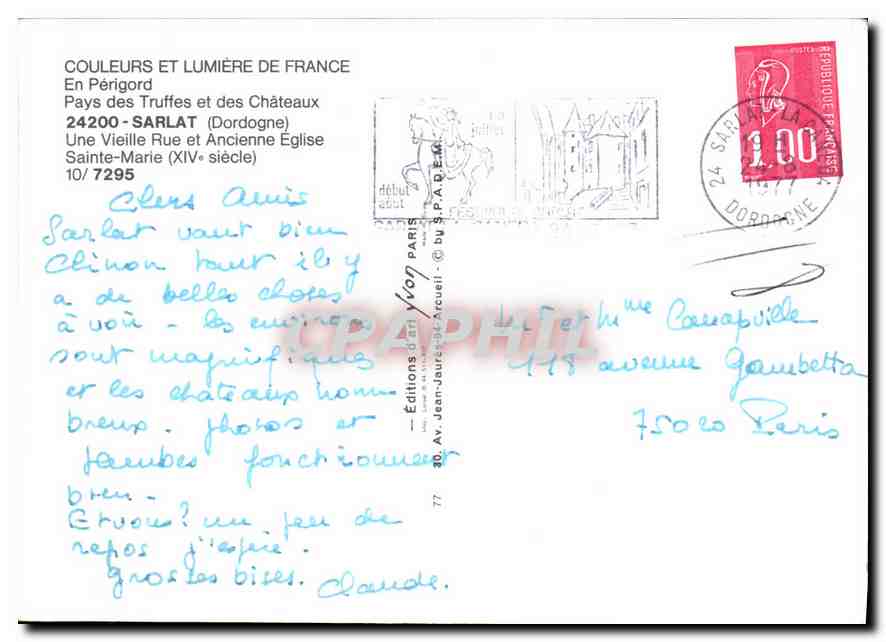 COULEURS ET LUMIÈRE DE FRANCE
En Périgord
Pays des Truffes et des Châteaux
24200 - SARLAT (Dordogne)
Une Vieille Rue et Ancienne Église
Sainte-Marie (XIVe siècle)
10/ 7295
Chers Amis
Sarlat vaut bien
Chinon tant il y
a de belles choses
à voir - les environs
sont magnifiques
et les châteaux nom-
breux. photos et
jambes fonctionnent
bien -
Et vous? un peu de
repos j'espère.
Grosses bises. Claude.
— Éditions d'art yvon PARIS
30. Av. Jean-Jaurès-94-Arcueil - © by S.P.A.D.E.M.
77
début
août
juillet
REPUBLIQUE FRANCAISE
1.00
24 SARLAT-LA-CANEDA
24-8
1977
DORDOGNE
Mr et Mme Canapville
118 avenue Gambetta
75020 Paris
CPAPHIL